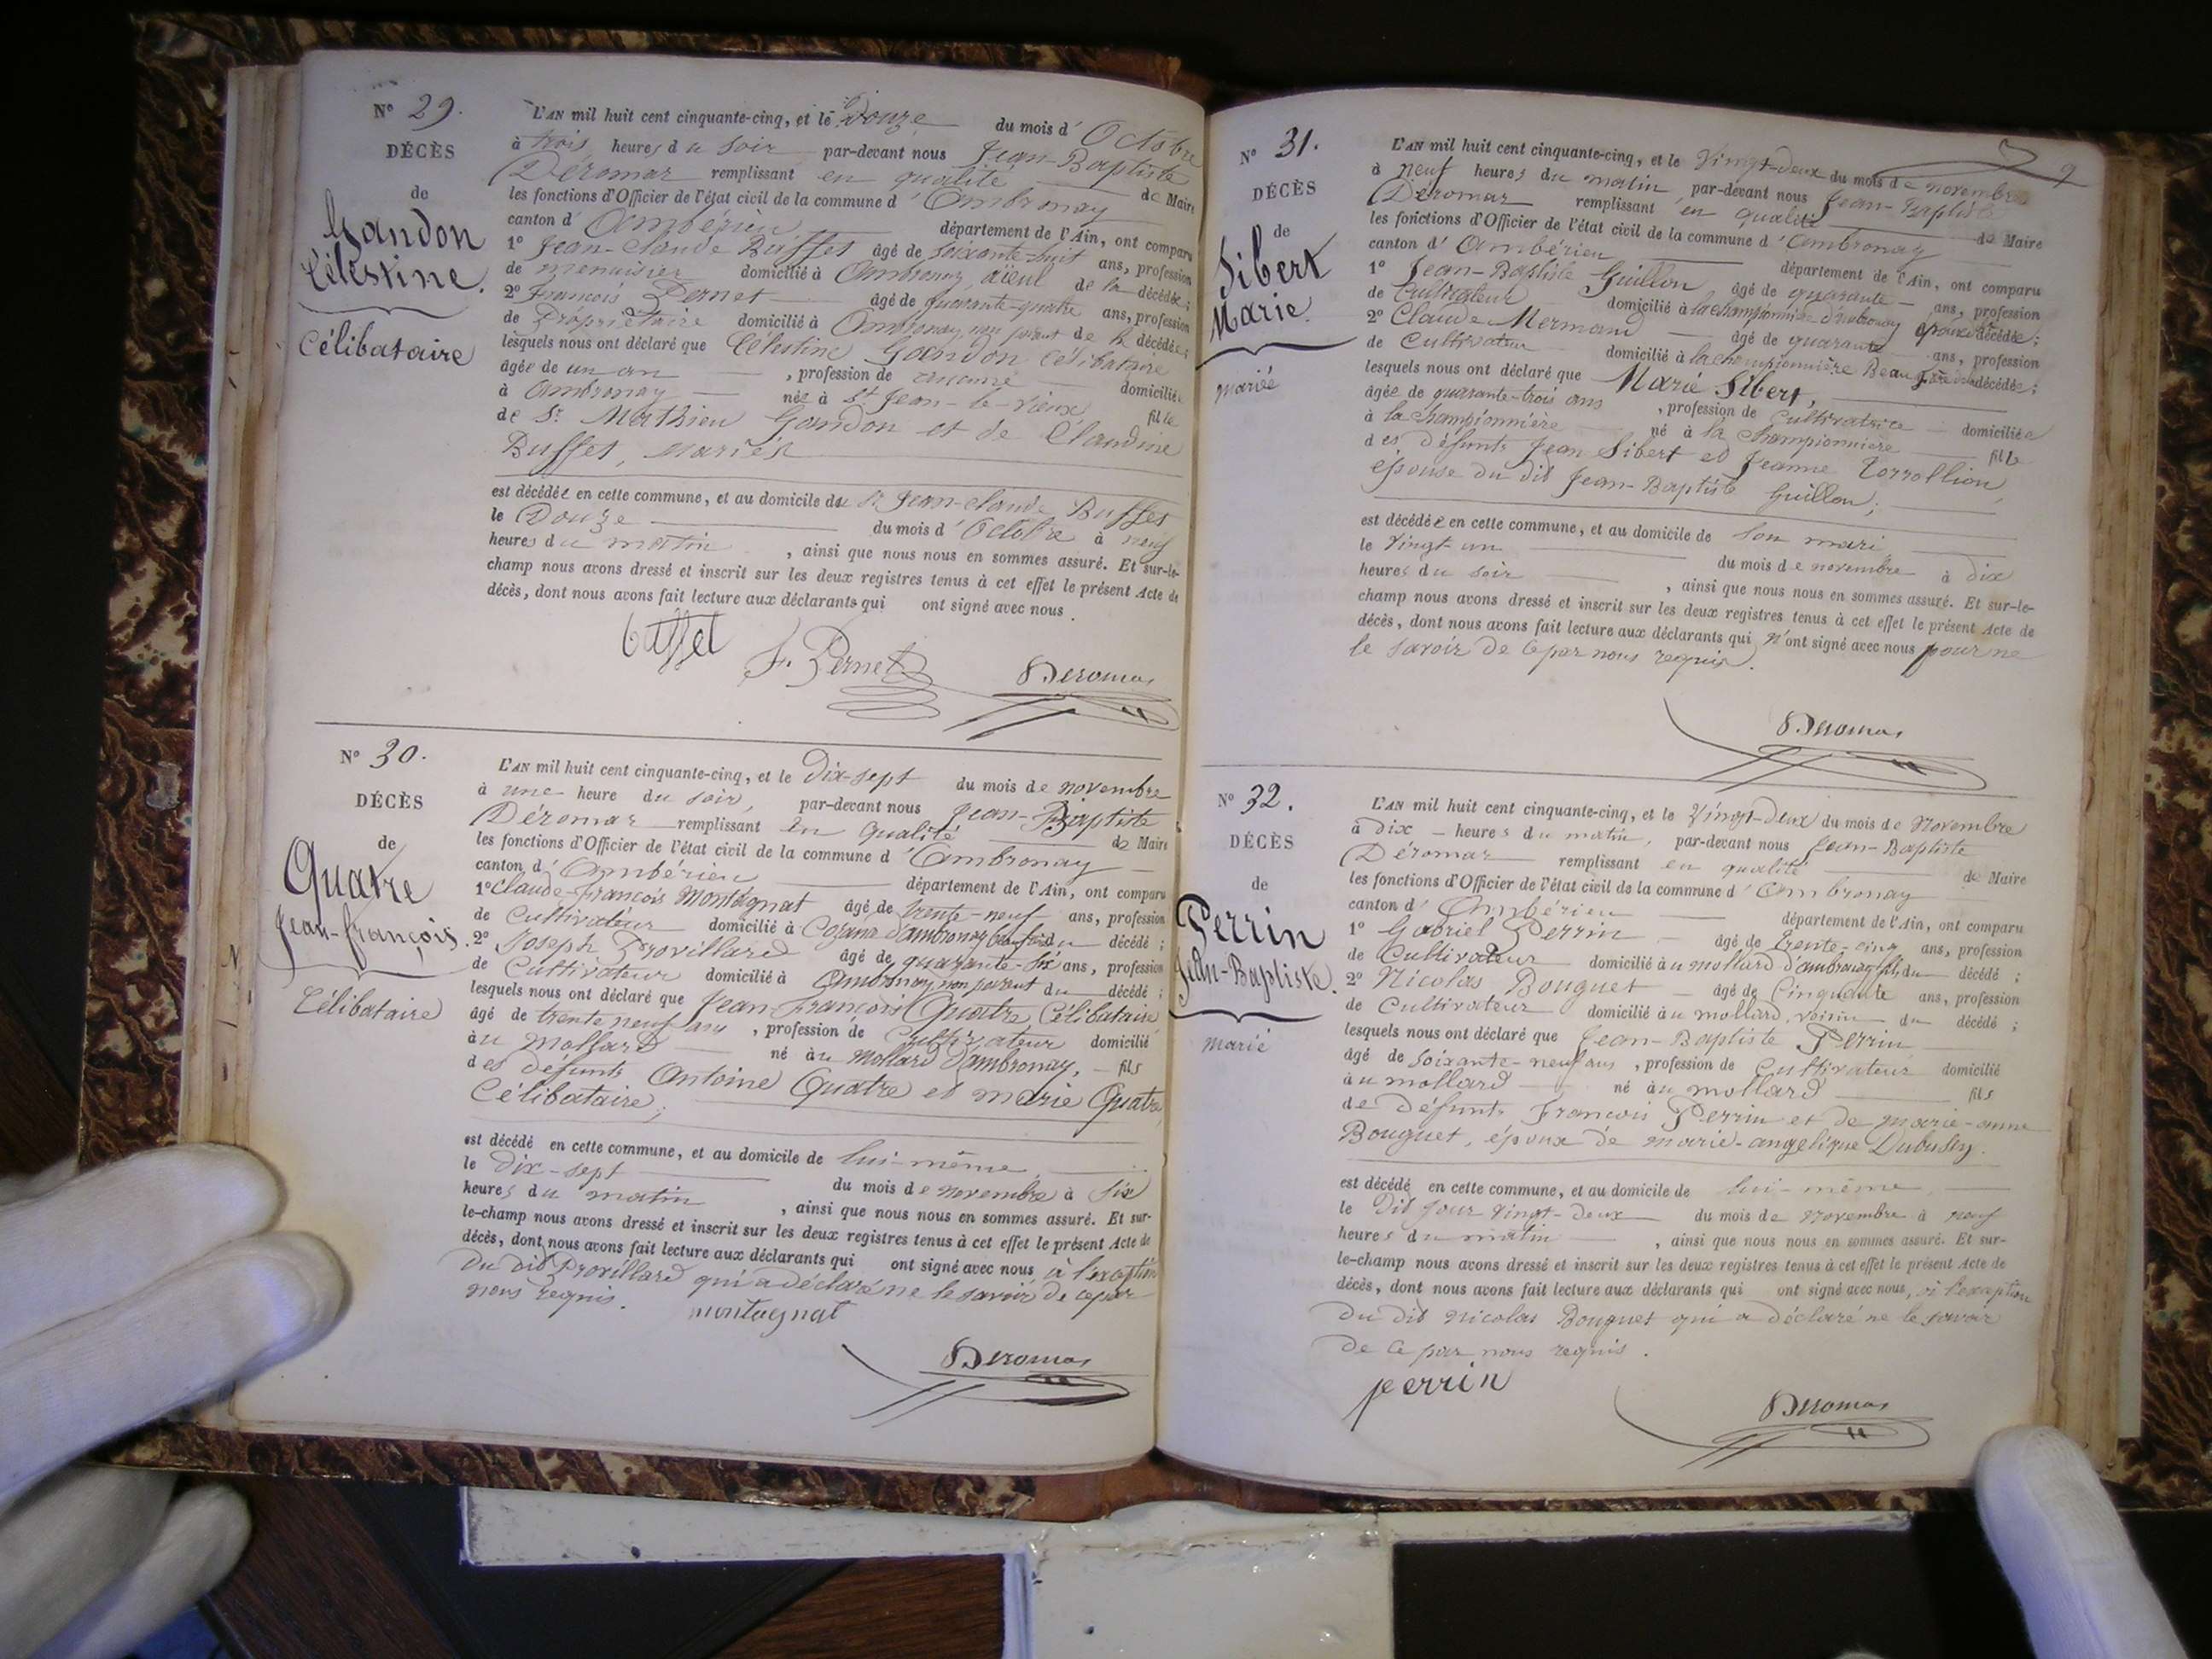 N° 29.
DÉCÈS
de
Gandon
Célestine.
Célibataire
L'AN mil huit cent cinquante-cinq, et le Douze du mois d'Octobre
à trois heures du soir par-devant nous Jean-Baptiste
Déromas remplissant en qualité de Maire
les fonctions d'Officier de l'état civil de la commune d'Ambronay
canton d'Ambérieu département de l'Ain, ont comparu
1° Jean-Claude Buffet âgé de soixante-huit ans, profession
de menuisier domicilié à Ambronay, aïeul de la décédée;
2° François Pernet âgé de quarante-quatre ans, profession
de Propriétaire domicilié à Ambronay, non parent de la décédée;
lesquels nous ont déclaré que Célestine Gandon Célibataire
âgée de un an, profession de aucune domiciliée
à Ambronay née à St Jean-le-Vieux fille
de Sr Mathieu Gandon et de Claudine
Buffet, mariés
est décédée en cette commune, et au domicile du Sr Jean-Claude Buffet
le Douze du mois d'Octobre à neuf
heures du matin, ainsi que nous nous en sommes assuré. Et sur-le-
champ nous avons dressé et inscrit sur les deux registres tenus à cet effet le présent Acte de
décès, dont nous avons fait lecture aux déclarants qui ont signé avec nous.
Buffet
F. Pernet
Deromas
N° 30.
DÉCÈS
de
Quatre
Jean-François.
Célibataire
L'AN mil huit cent cinquante-cinq, et le Dix-sept du mois de novembre
à une heure du soir, par-devant nous Jean-Baptiste
Déromas remplissant en qualité de Maire
les fonctions d'Officier de l'état civil de la commune d'Ambronay
canton d'Ambérieu département de l'Ain, ont comparu
1° Claude-François Montagnat âgé de trente-neuf ans, profession
de Cultivateur domicilié à d'ambronay du décédé;
2° Joseph Provillard âgé de quarante-six ans, profession
de Cultivateur domicilié à Ambronay non parent du décédé;
lesquels nous ont déclaré que Jean-François Quatre Célibataire
âgé de trente neuf ans, profession de Cultivateur domicilié
au Mollard né au Mollard d'ambronay, fils
des défunts Antoine Quatre et marie Quatre,
Célibataire;
est décédé en cette commune, et au domicile de lui-même,
le dix-sept du mois de novembre à six
heures du matin, ainsi que nous nous en sommes assuré. Et sur-
le-champ nous avons dressé et inscrit sur les deux registres tenus à cet effet le présent Acte de
décès, dont nous avons fait lecture aux déclarants qui ont signé avec nous à l'exception
du dit Provillard qui a déclaré ne le savoir de ce par
nous requis.
montagnat
Deromas
9
N° 31.
DÉCÈS
de
Sibert
Marie.
mariée
L'AN mil huit cent cinquante-cinq, et le Vingt-Deux du mois de novembre
à neuf heures du matin par-devant nous Jean-Baptiste
Déromas remplissant en qualité de Maire
les fonctions d'Officier de l'état civil de la commune d'Ambronay
canton d'Ambérieu département de l'Ain, ont comparu
1° Jean-Baptiste Guillon âgé de quarante ans, profession
de Cultivateur domicilié à la championnière d'ambronay époux décédée;
2° Claude Mermand âgé de quarante ans, profession
de Cultivateur domicilié à la championnière Beau frère décédée;
lesquels nous ont déclaré que Marie Sibert,
âgée de quarante-trois ans, profession de Cultivatrice domiciliée
à la championnière né à la championnière fille
des défunts Jean Sibert et Jeanne Torrollion,
épouse du dit Jean-Baptiste Guillon;
est décédée en cette commune, et au domicile de son mari,
le Vingt-un du mois de novembre à dix
heures du soir, ainsi que nous nous en sommes assuré. Et sur-le-
champ nous avons dressé et inscrit sur les deux registres tenus à cet effet le présent Acte de
décès, dont nous avons fait lecture aux déclarants qui n'ont signé avec nous pour ne
le savoir de ce par nous requis.
Deromas
N° 32.
DÉCÈS
de
Perrin
Jean-Baptiste.
Marié
L'AN mil huit cent cinquante-cinq, et le Vingt-Deux du mois de Novembre
à Dix heures du matin, par-devant nous Jean-Baptiste
Déromas remplissant en qualité de Maire
les fonctions d'Officier de l'état civil de la commune d'Ambronay
canton d'Ambérieu département de l'Ain, ont comparu
1° Gabriel Perrin âgé de trente-cinq ans, profession
de Cultivateur domicilié au mollard d'ambronay fils du décédé;
2° Nicolas Bouguet âgé de Cinquante ans, profession
de Cultivateur domicilié au mollard, voisin du décédé;
lesquels nous ont déclaré que Jean-Baptiste Perrin
âgé de soixante-neuf ans, profession de Cultivateur domicilié
au mollard né au mollard fils
de défunts François Perrin et de marie-anne
Bouguet, époux de marie-angélique Dubussy.
est décédé en cette commune, et au domicile de lui-même,
le Dit jour vingt-deux du mois de novembre à neuf
heures du matin, ainsi que nous nous en sommes assuré. Et sur-
le-champ nous avons dressé et inscrit sur les deux registres tenus à cet effet le présent Acte de
décès, dont nous avons fait lecture aux déclarants qui ont signé avec nous, à l'exception
du dit Nicolas Bouguet qui a déclaré ne le savoir
de ce par nous requis.
perrin
Deromas